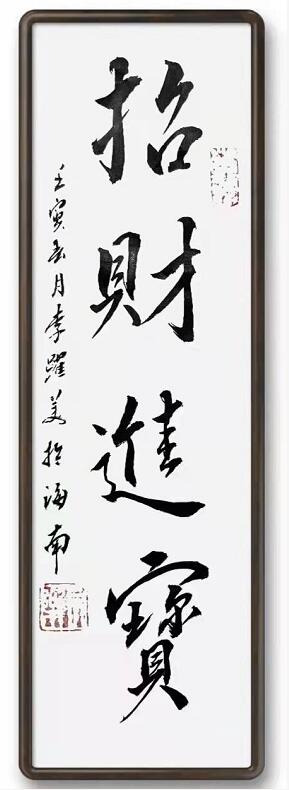 招財進寶
壬寅春月李躍美於海南